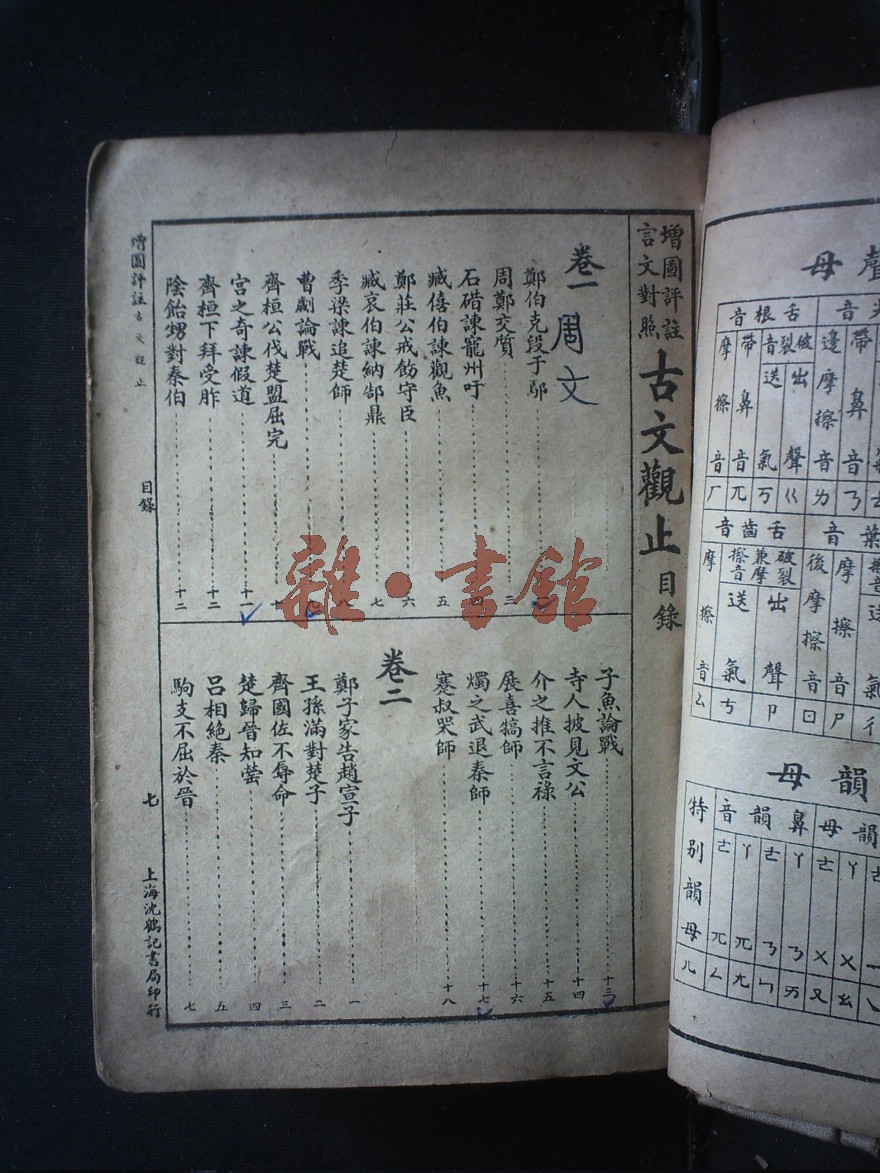 增圖評註
言文對照
古文觀止 目錄
卷一 周文
鄭伯克段于鄢
周鄭交質 三
石碏諫寵州吁 四
臧僖伯諫觀魚 五
鄭莊公戒飭守臣 六
臧哀伯諫納郜鼎 七
季梁諫追楚師 八
曹劌論戰 九
齊桓公伐楚盟屈完 十
宮之奇諫假道 十一
齊桓下拜受胙 十二
陰飴甥對秦伯 十二
子魚論戰 十三
寺人披見文公 十四
介之推不言祿 十五
展喜犒師 十六
燭之武退秦師 十七
蹇叔哭師 十八
卷二
鄭子家告趙宣子 一
王孫滿對楚子 二
齊國佐不辱命 三
楚歸晉知罃 四
呂相絕秦 五
駒支不屈於晉 七
增圖評註古文觀止
目錄
七
上海沈鶴記書局印行
雜·書館
聲母
舌根音
破裂音
出聲 ㄍ
送氣 ㄎ
帶鼻音 ㄫ
摩擦音 ㄏ
帶鼻音 ㄋ
邊摩擦音 ㄌ
舌齒音
破裂兼摩擦音
出聲 ㄗ
送氣 ㄘ
摩擦音 ㄙ
葉音
摩擦音 ㄕ
後摩擦音 ㄖ
韻母
鼻韻音
ㄚㄋ ㄢ
ㄜㄋ ㄣ
ㄚㄫ ㄤ
ㄜㄫ ㄥ
特別韻母 ㄦ
ㄚㄨ ㄠ
ㄜㄨ ㄡ